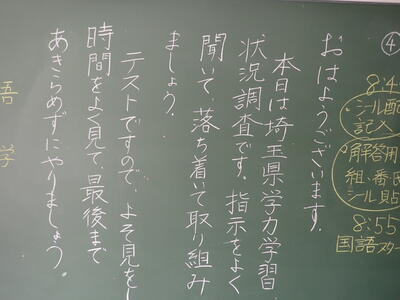 ④
8:4
シール配
記入
解答用
組・番・氏
シール貼
8:55
国語スター
おはようございます。
本日は埼玉県学力学習
状況調査です。指示をよく
聞いて、落ち着いて取り組み
ましょう。
テストですので、よそ見をし
時間をよく見て、最後まで
あきらめずにやりましょう。
語
学